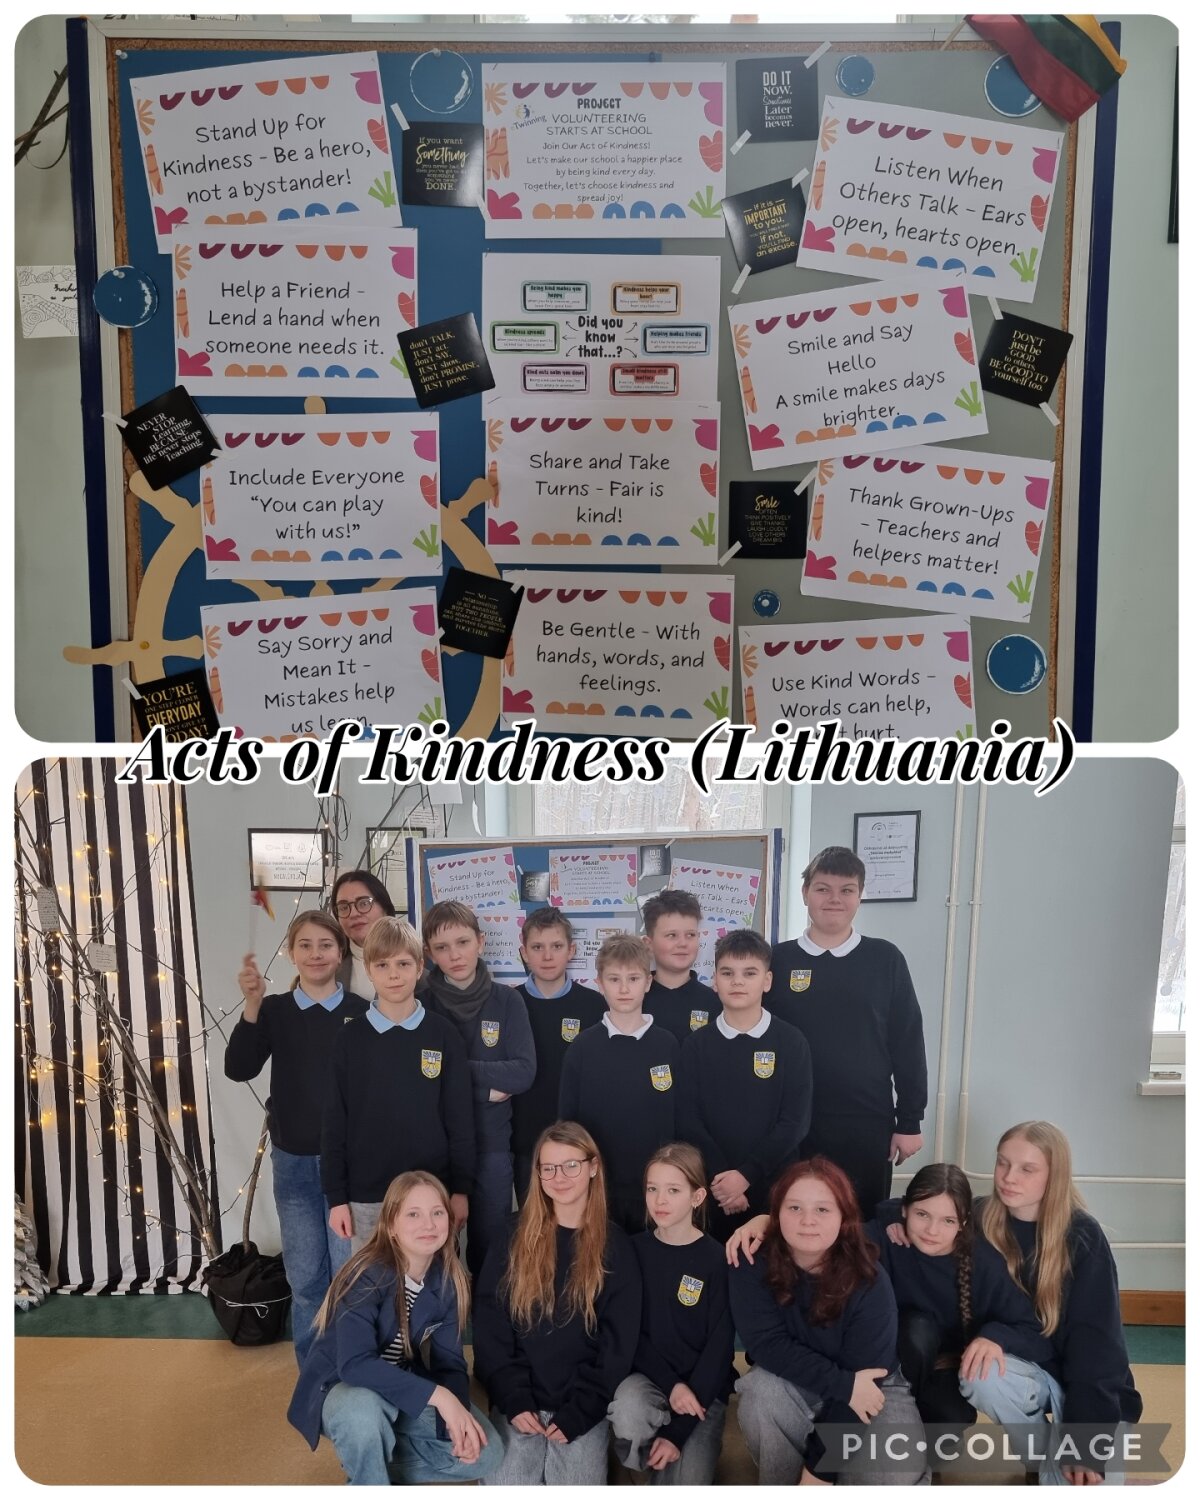 Stand Up for
Kindness - Be a hero,
not a bystander!
If you want
Something
you never had
DONE.
PROJECT
Twinning
VOLUNTEERING
STARTS AT SCHOOL
Join Our Act of Kindness!
Let's make our school a happier place
by being kind every day.
Together, let's choose kindness and
spread joy!
DO IT
NOW.
Sometimes
Later
becomes
never.
Listen When
Others Talk - Ears
open, hearts open.
If it is
IMPORTANT
to you,
if not,
YOU'LL FIND
an excuse.
Help a Friend -
Lend a hand when
someone needs it.
don't TALK,
JUST act.
don't SAY,
JUST show.
don't PROMISE,
JUST prove.
Being kind makes you
happy
Kindness helps your
heart
Kindness spreads
Did you
know
that...?
Helping makes friends
Kind acts calm you down
Small kindness still
matters
Smile and Say
Hello
A smile makes days
brighter.
DON'T
just be
GOOD
to others,
BE GOOD TO
Yourself too.
NEVER
STOP
Learning,
BECAUSE
life never stops
Teaching.
Include Everyone
"You can play
with us!"
Share and Take
Turns - Fair is
kind!
Smile
OFTEN
THINK POSITIVELY
GIVE THANKS
LAUGH LOUDLY
LOVE OTHERS
DREAM BIG
Thank Grown-Ups
- Teachers and
helpers matter!
Say Sorry and
Mean It -
Mistakes help
us learn.
NO
relationship
is all sunshine,
BUT TWO PEOPLE
can share one umbrella
and survive the storm
TOGETHER.
Be Gentle - With
hands, words, and
feelings.
Use Kind Words -
Words can help,
hurt.
YOU'RE
ONE STEP CLOSER
EVERYDAY
DON'T GIVE UP
TODAY!
Acts of Kindness (Lithuania)
Stand Up for
Kindness - Be a hero,
not a bystander!
PROJECT
VOLUNTEERING
STARTS AT SCHOOL
Listen When
Others Talk - Ears
hearts open.
Did you
know
that...?
PIC•COLLAGE